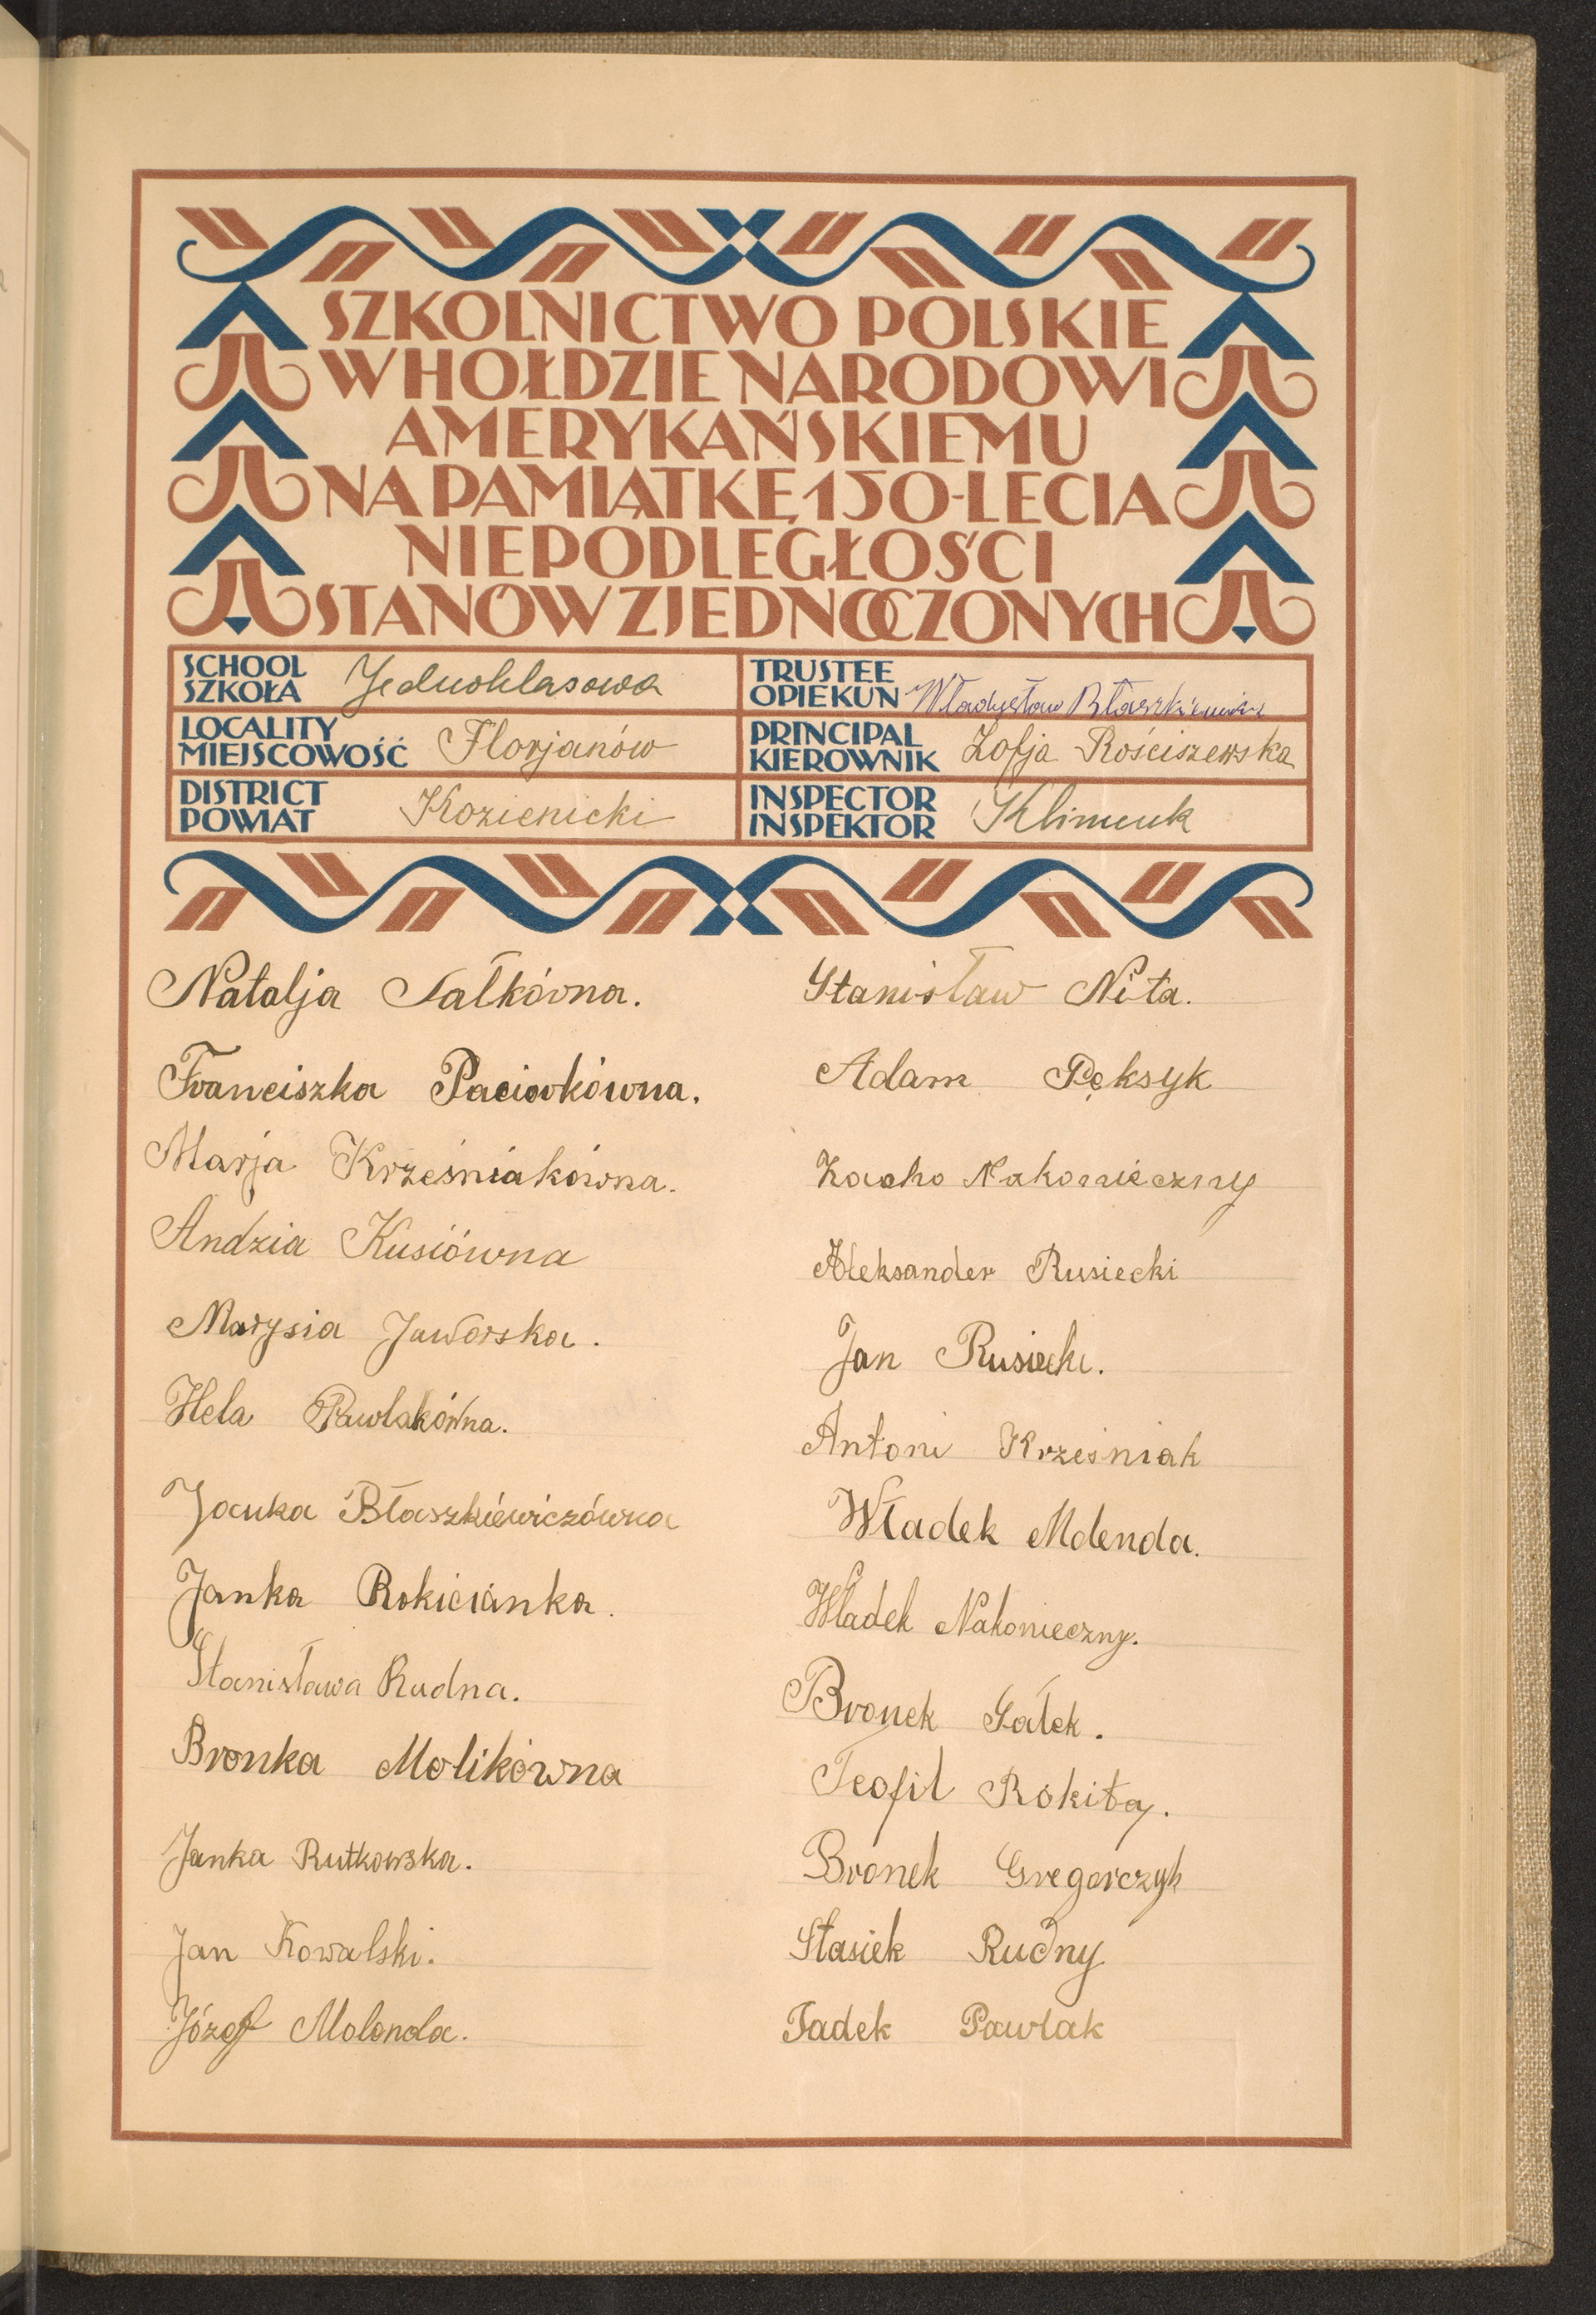 SZKOLNICTWO POLSKIE
W HOŁDZIE NARODOWI
AMERYKAŃSKIEMU
NA PAMIĄTKĘ 150-LECIA
NIEPODLEGŁOŚCI
STANÓW ZJEDNOCZONYCH
SCHOOL
SZKOŁA Jednoklasowa
TRUSTEE
OPIEKUN Władysław Błaszkiewicz
LOCALITY
MIEJSCOWOŚĆ Florjanów
PRINCIPAL
KIEROWNIK Zofja Rościszewska
DISTRICT
POWIAT Kozienicki
INSPECTOR
INSPEKTOR Klimcuk
Natalja Sałkówna.
Franciszka Paciorkówna.
Marja Krześniakówna.
Andzia Kusiówna
Marysia Jaworska.
Hela Pawlakówna.
Janka Błaszkiewiczówna
Janka Rokicianka.
Stanisława Rudna.
Bronka Molikówna
Janka Rutkowska.
Jan Kowalski.
Józef Molenda.
Stanisław Nita.
Adam Pęksyk
Nakonieczny
Aleksander Rusiecki
Jan Rusiecki.
Antoni Krześniak
Władek Molenda.
Władek Nakonieczny.
Bronek Gałek.
Teofil Rokita.
Bronek Gregorczyk
Stasiek Rudny
Tadek Pawlak